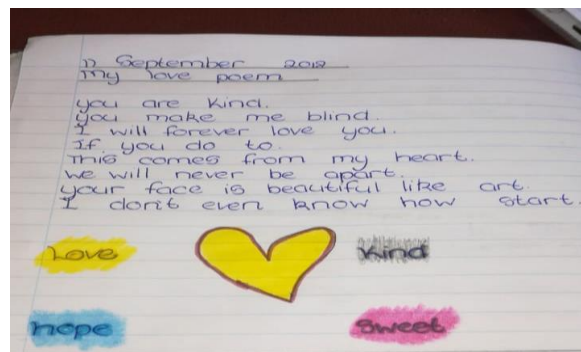 11 September 2018
My love poem
you are kind.
you make me blind.
I will forever love you.
If you do to.
This comes from my heart.
we will never be apart.
your face is beautiful like art.
I don't even know how start.
Love
Kind
hope
Sweet